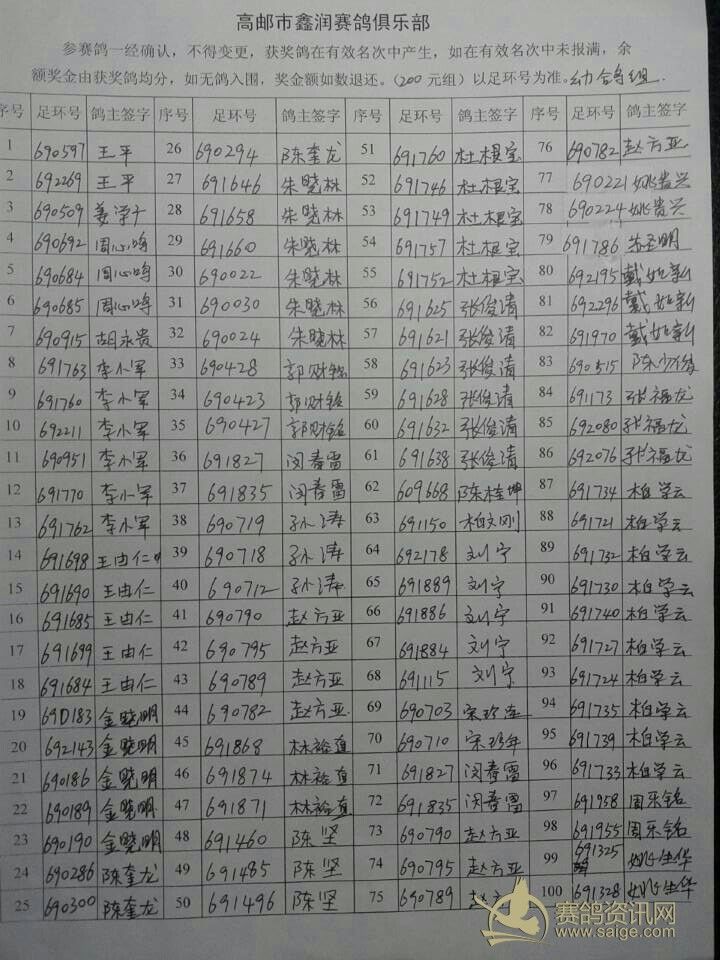 高邮市鑫润赛鸽俱乐部
参赛鸽一经确认，不得变更，获奖鸽在有效名次中产生，如在有效名次中未报满，余
额奖金由获奖鸽均分，如无鸽入围，奖金额如数退还。（200元组）以足环号为准。幼鸽组.
序号 足环号 鸽主签字 序号 足环号 鸽主签字 序号 足环号 鸽主签字 序号 足环号 鸽主签字
1 690597 王平 26 690294 陈奎龙 51 691760 杜根宝 76 690782 赵方亚
2 692269 王平 27 691646 朱晓林 52 691746 杜根宝 77 690221 姚贵兴
3 690509 姜学干 28 691658 朱晓林 53 691749 杜根宝 78 690224 姚贵兴
4 690692 周心鸣 29 691660 朱晓林 54 691757 杜根宝 79 691786
5 690684 周心鸣 30 690022 朱晓林 55 691752 杜根宝 80 692195 戴如新
6 690685 周心鸣 31 690030 朱晓林 56 691625 张俊清 81 692296 戴如新
7 690915 胡永贵 32 690024 朱晓林 57 691621 张俊清 82 691970 戴如新
8 691763 李小军 33 690428 郭财铭 58 691623 张俊清 83 690515
9 691760 李小军 34 690423 郭财铭 59 691628 张俊清 84 691173 张福龙
10 692211 李小军 35 690427 郭财铭 60 691632 张俊清 85 692080 张福龙
11 690951 李小军 36 691827 闵春雷 61 691638 张俊清 86 692076 张福龙
12 691770 李小军 37 691835 闵春雷 62 609668 陈桂坤 87 691734 柏学云
13 691762 李小军 38 690719 孙涛 63 691150 柏文刚 88 691721 柏学云
14 691698 王由仁 39 690718 孙涛 64 692178 刘宁 89 691732 柏学云
15 691690 王由仁 40 690712 孙涛 65 691889 刘宁 90 691730 柏学云
16 691685 王由仁 41 690790 赵方亚 66 691886 刘宁 91 691740 柏学云
17 691699 王由仁 42 690795 赵方亚 67 691884 刘宁 92 691727 柏学云
18 691684 王由仁 43 690789 赵方亚 68 691115 刘宁 93 691724 柏学云
19 690183 金晓明 44 690782 赵方亚 69 690703 94 691735 柏学云
20 692143 金晓明 45 691868 林裕直 70 690710 95 691739 柏学云
21 690186 金晓明 46 691874 林裕直 71 691827 闵春雷 96 691733 柏学云
22 690189 金晓明 47 691871 林裕直 72 691835 闵春雷 97 691958 周乐铭
23 690190 金晓明 48 691460 陈坚 73 690790 赵方亚 98 691955 周乐铭
24 690286 陈奎龙 49 691485 陈坚 74 690795 赵方亚 99 691325 姚生华
25 690300 陈奎龙 50 691496 陈坚 75 690789 赵方 100 691328 姚生华
赛鸽资讯网
www.saige.com